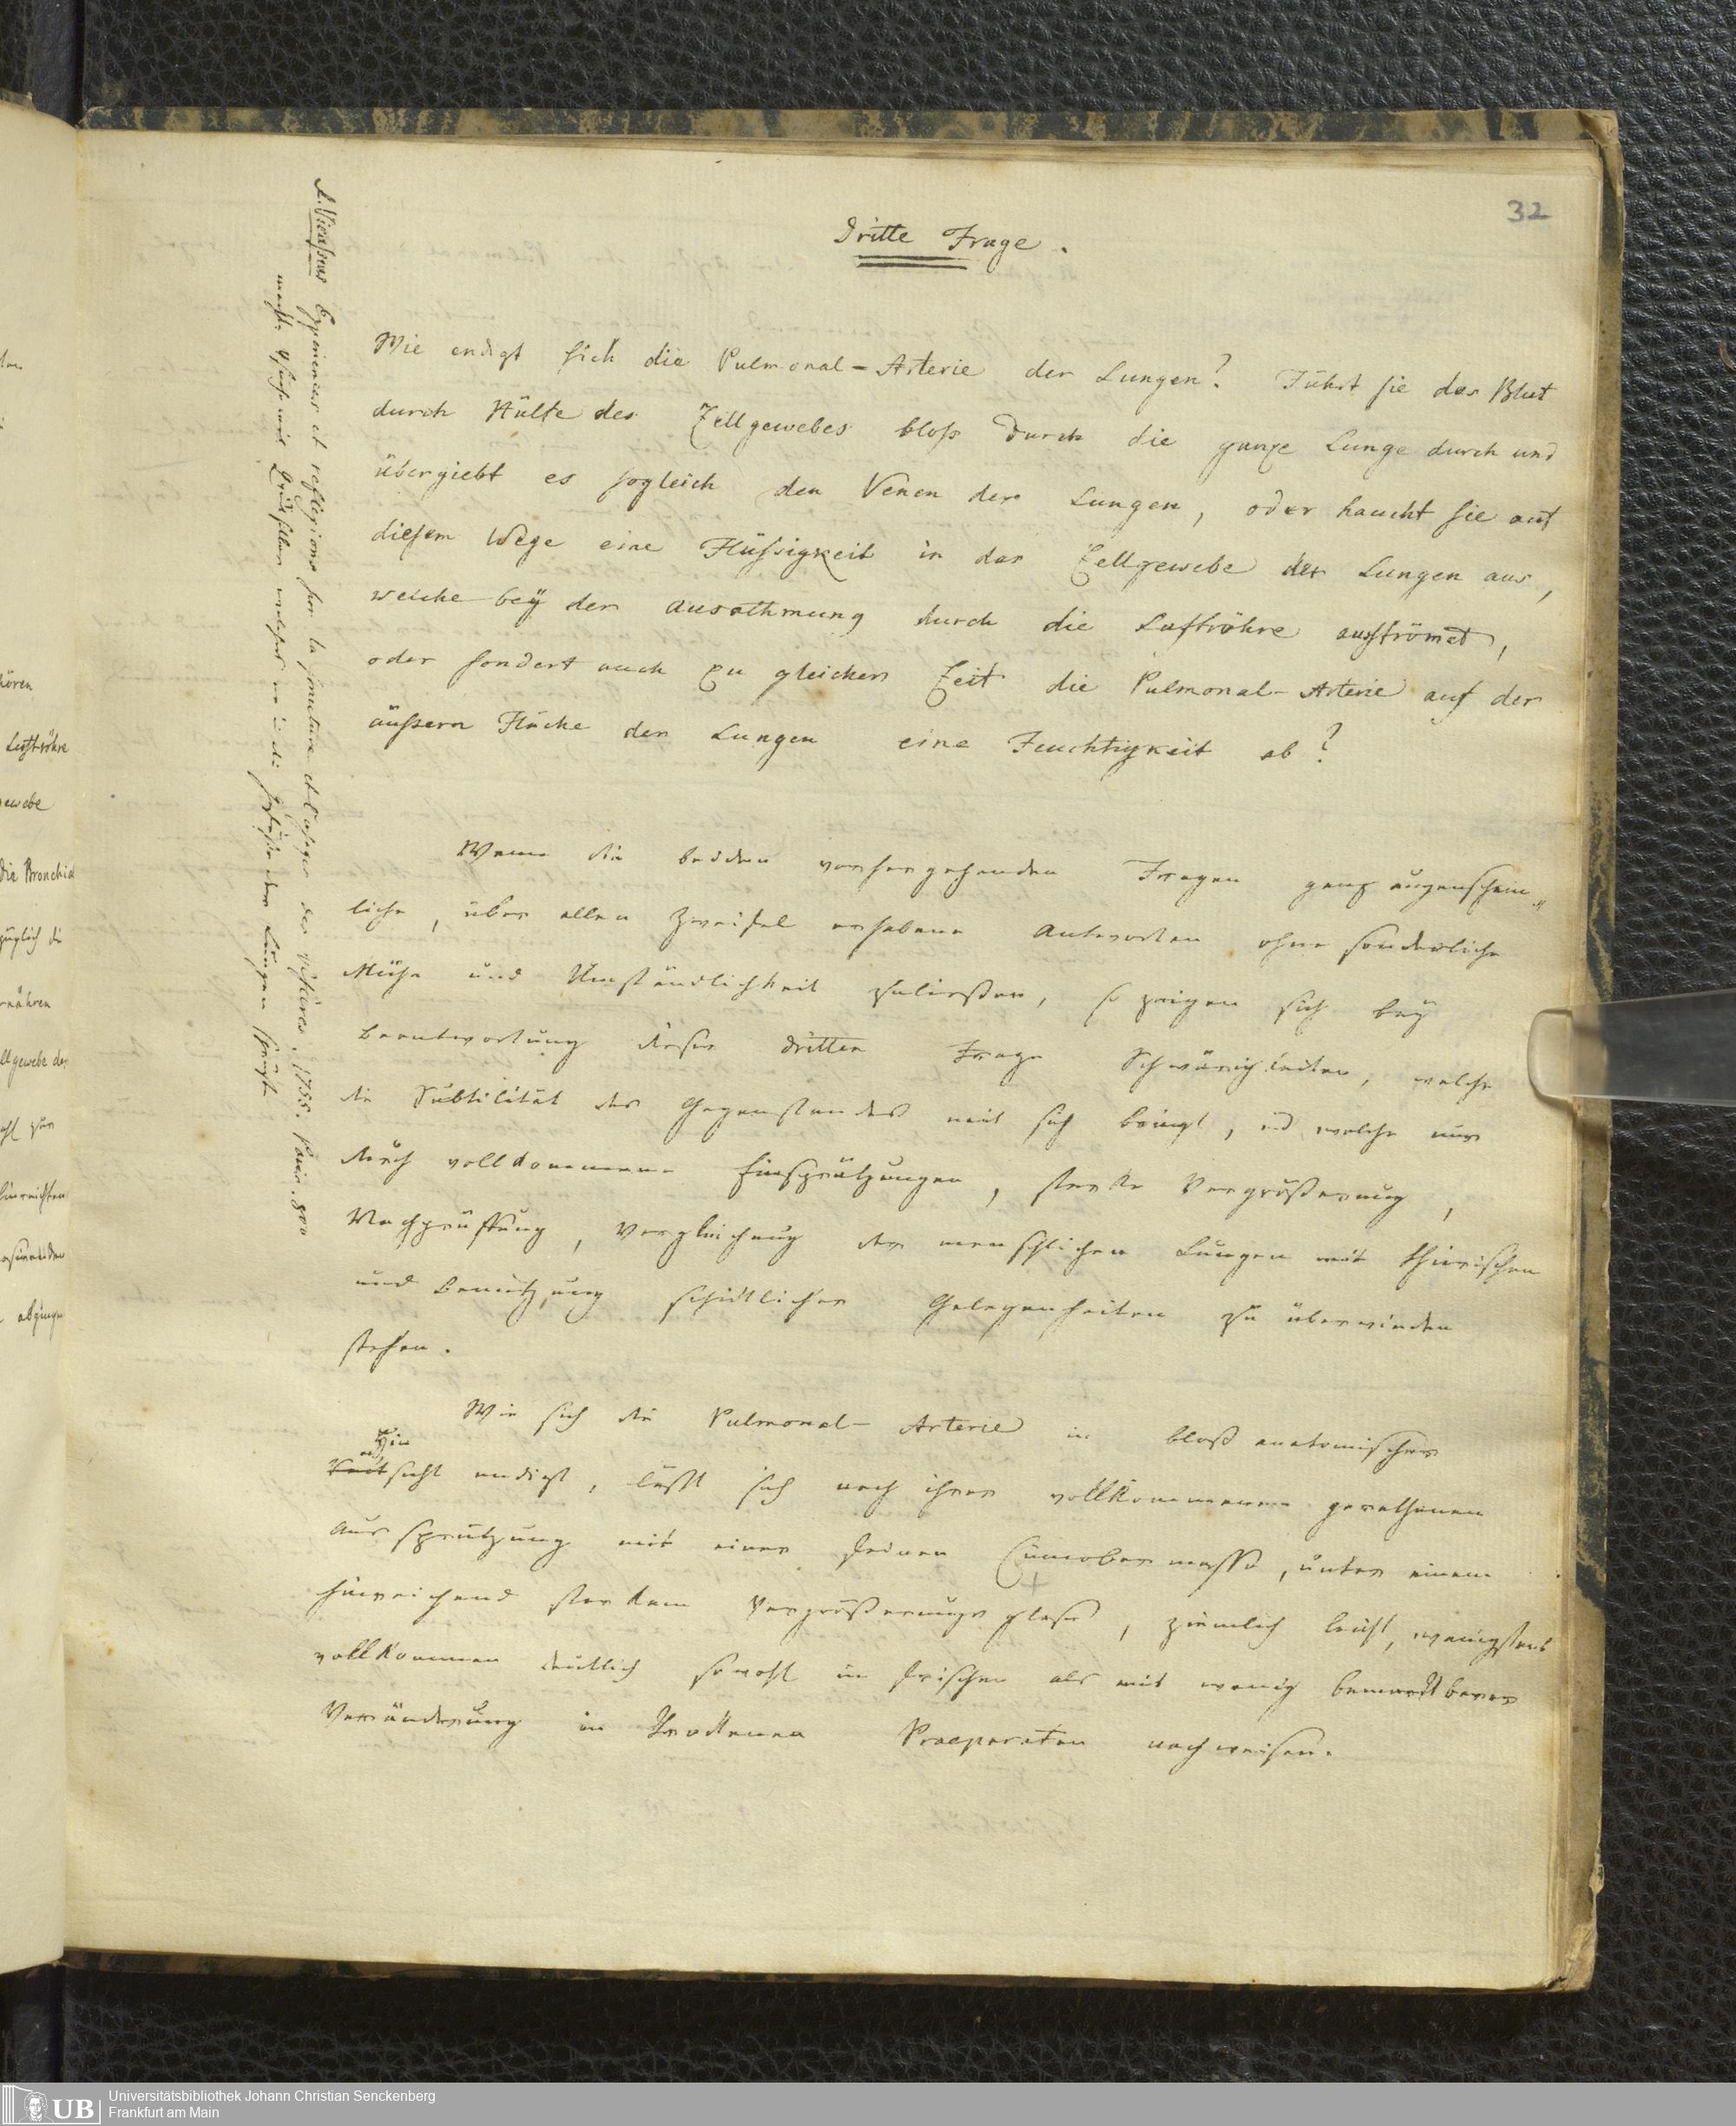 32
Dritte Frage.
Wie endigt sich die Pulmonal-Arterie der Lungen? Führt sie das Blut
durch Hülfe des Zellgewebes bloß durch die ganze Lunge durch und
übergiebt es sogleich den Venen der Lungen, oder haucht sie auf
diesem Wege eine Flüssigkeit in das Zellgewebe der Lungen aus,
welche bey der ausathmung durch die Luftröhre ausströmet,
oder sondert auch zu gleicher Zeit die Pulmonal-Arterie auf der
äussern Fläche der Lungen eine Feuchtigkeit ab?
Wenn die beiden vorhergehenden Fragen ganz augenschein„
liche, über allen Zweifel erhabene Antworten ohne sonderliche
Mühe und Umständlichkeit zuließen, so zeigen sich bey
Beantwortung dieser dritten Frage Schwürigkeiten, welche
die Subtilität des Gegenstandes mit sich bringt, und welche nur
durch vollkommene Einsprützungen, starke Vergrößerung,
Nachprüffung, Vergleichung der menschlichen Lungen mit thierischen
und Benutzung schicklicher Gelegenheiten zu überwinden
stehen.
Wie sich die Pulmonal-Arterie in bloß anatomischer
Hinsicht endigt, läßt sich nach ihrer vollkommenen gerathenen
Aussprützung mit einer feinen Cinnobermasse, unter einem
hinreichend starkem Vergrößerungsglase, ziemlich leicht, wenigstens
vollkommen deutlich sowohl in frischen als mit wenig bemerkbarer
Veränderung in trockenen Praeparaten nachweisen.
R. Vieussens Experiences et reflexions sur la structure et l'usage des visceres. 1755. Paris. 8vo
macht Versuche mit Quecksilber welches er in die Gefäße der Lungen sprüzte
hören
Luftröhre
ewebe
die Bronchial
züglich die
rnähren
llgewebe der
hinreichten
abgingen
Universitätsbibliothek Johann Christian Senckenberg
Frankfurt am Main
UB